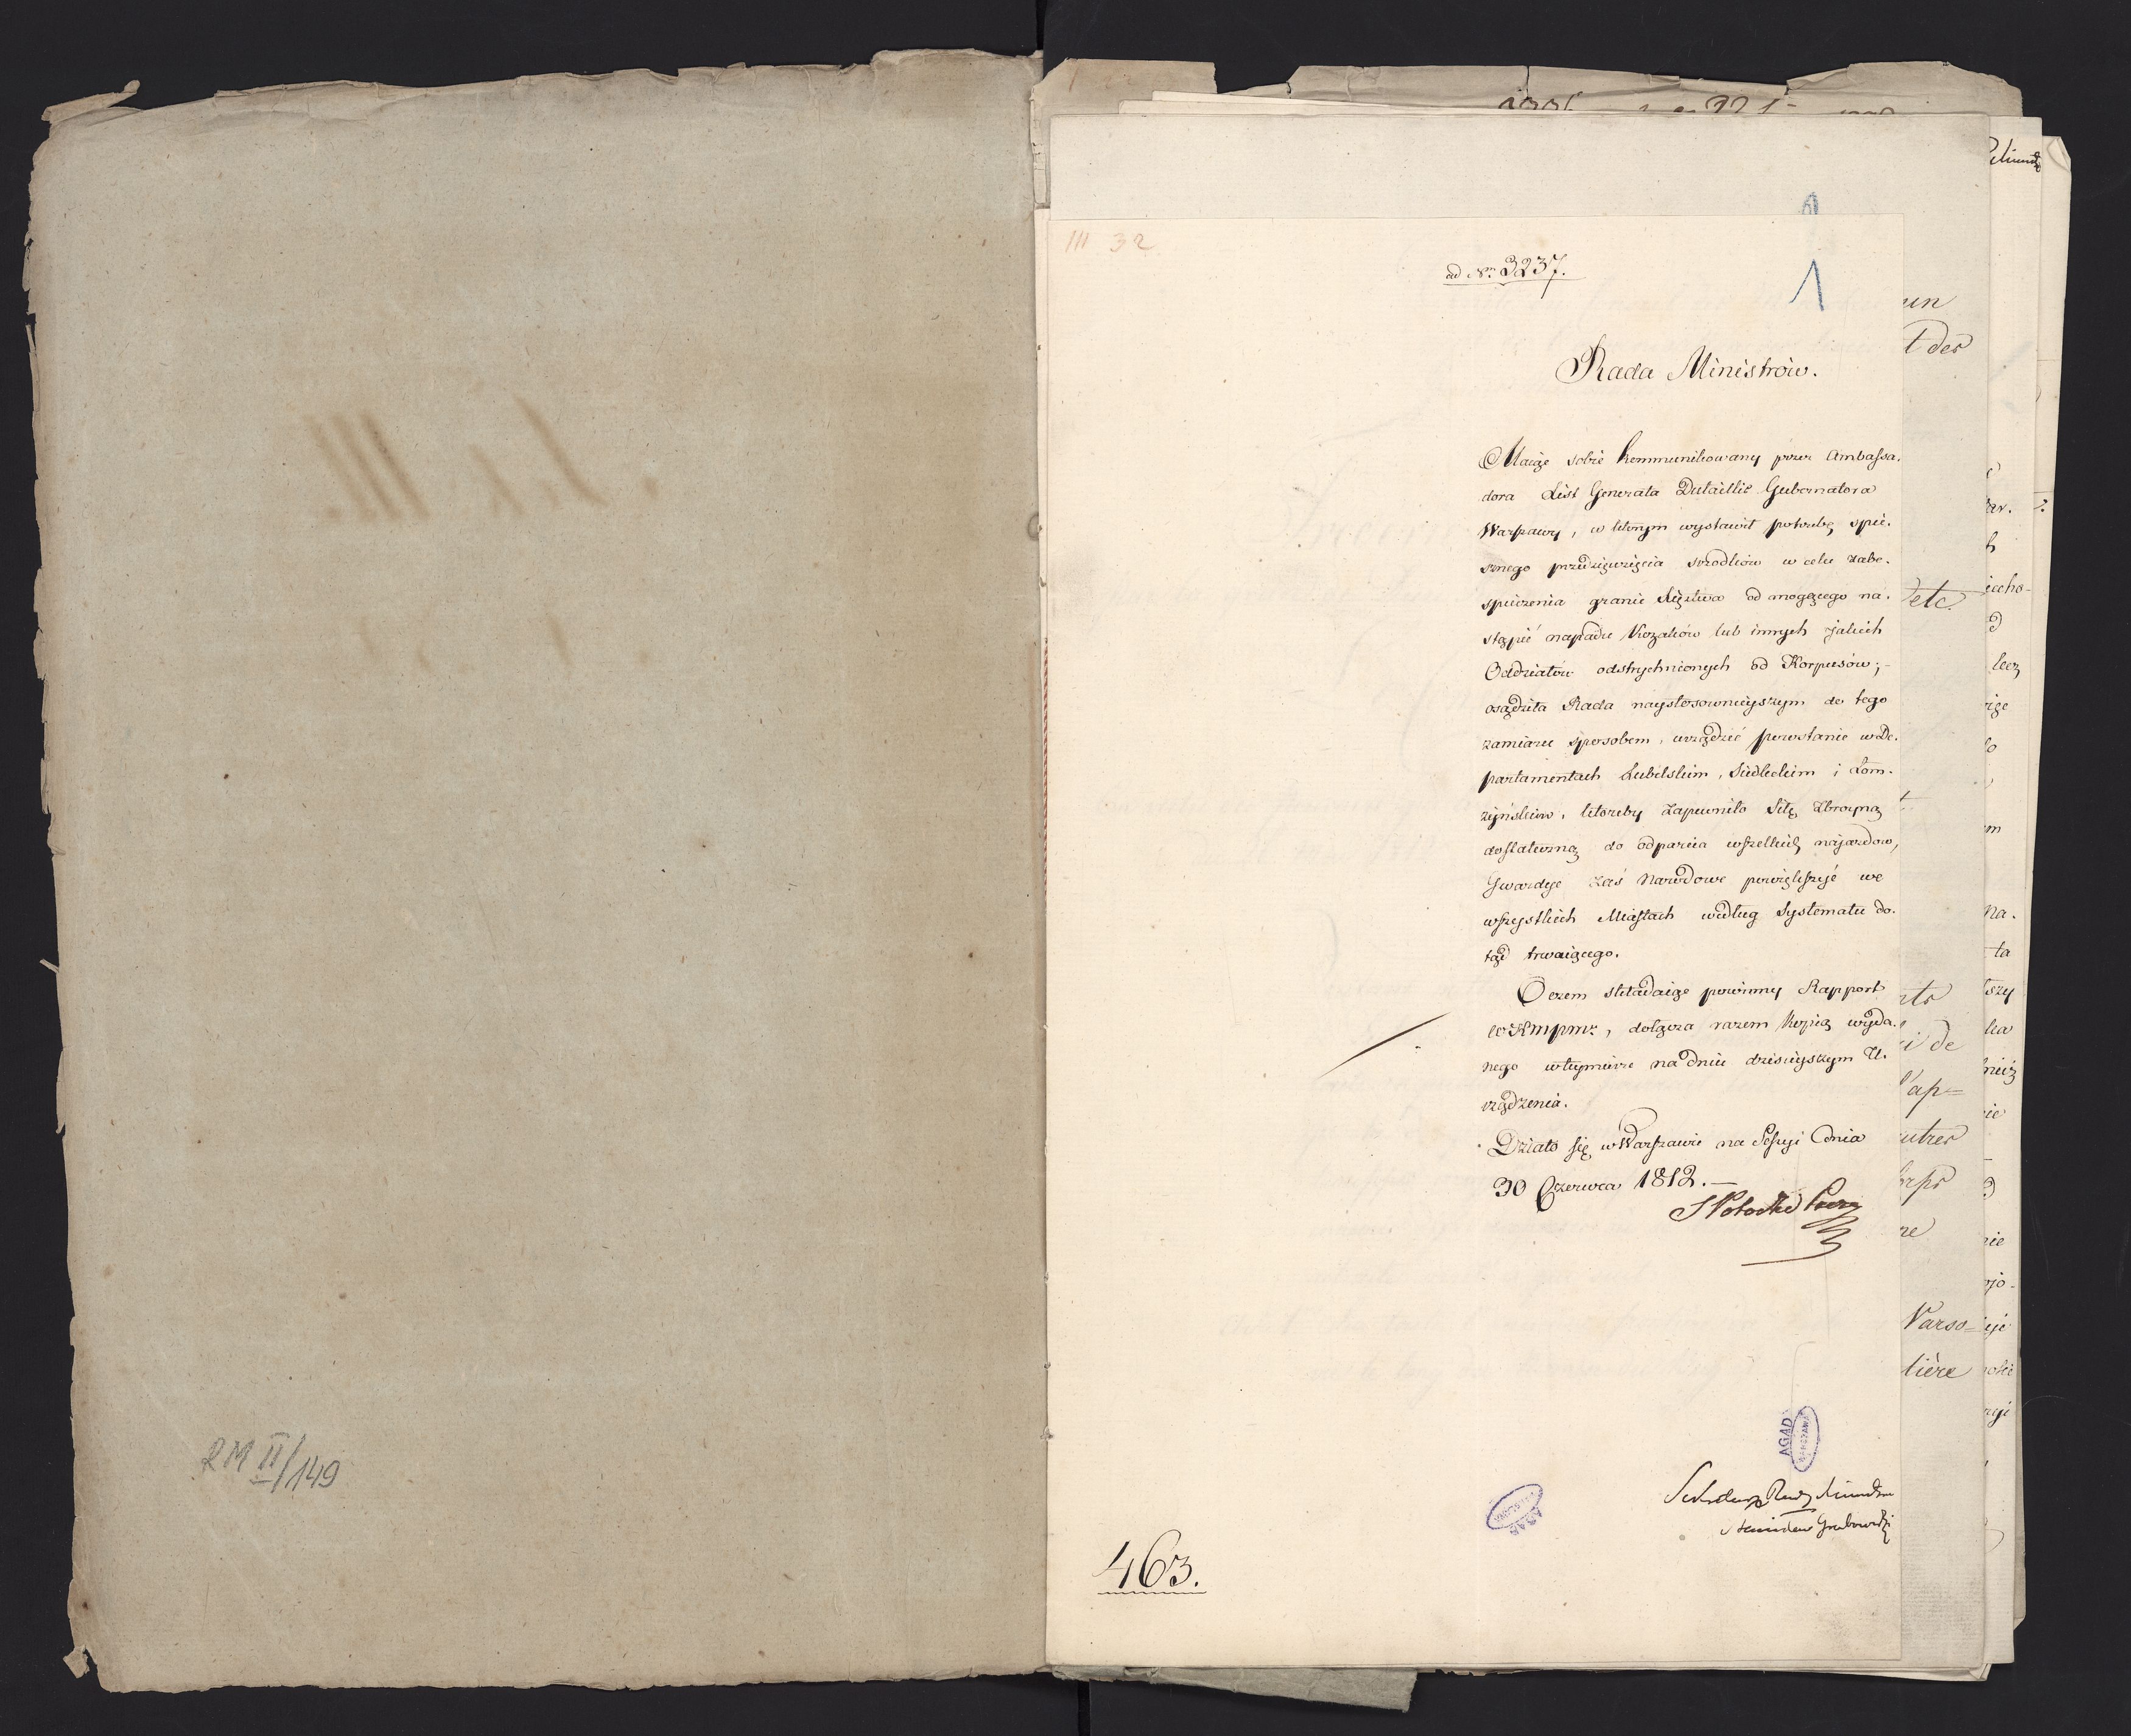 RM II/149
III 32
ad Nr 3237.
1
1
Rada Ministrów.
Maiąc sobie kommunikowany przez Ambassa.
dora List Generała Dutaillis Gubernatora
Warszawy, w którym wystawił potrzebę spie.
sznego przedsięwzięcia szrodków w celu zabe.
spieczenia granic Xięstwa od mogącego na.
stąpić napadu Kozaków lub innych jakich
Oddziałów odstrychnionych od Korpusów;-
osądziła Rada naystosownieyszym do tego
zamiaru sposobem, urządzić powstanie w De.
partamentach Lubelskim, Siedleckim i Łom.
żyńskim, któreby zapewniło Siłę Zbroyną
dostateczną do odparcia wszelkich najazdow,
Gwardye zaś Narodowe powiększyć we
wszystkich Miastach według Systematu do.
tąd trwaiącego.
O czem składaiąc powinny Rapport
WKMpmu, dołącza razem kopią wyda.
nego w tey mierze na dniu dzisieyszym U.
rządzenia.
Działo się w Warszawie na Sessyi dnia
30 Czerwca 1812.-
S Potocki Prez
AGAD
WARSZAWA
AGAD
WARSZAWA
Sekretarz Rady Ministrów
Stanisław Grabowski
463.
un
t des
etc.
i de
l'ap=
utres
orps
re
Varso=
lière
iecho-
lecz
na.
ta
szy
nie